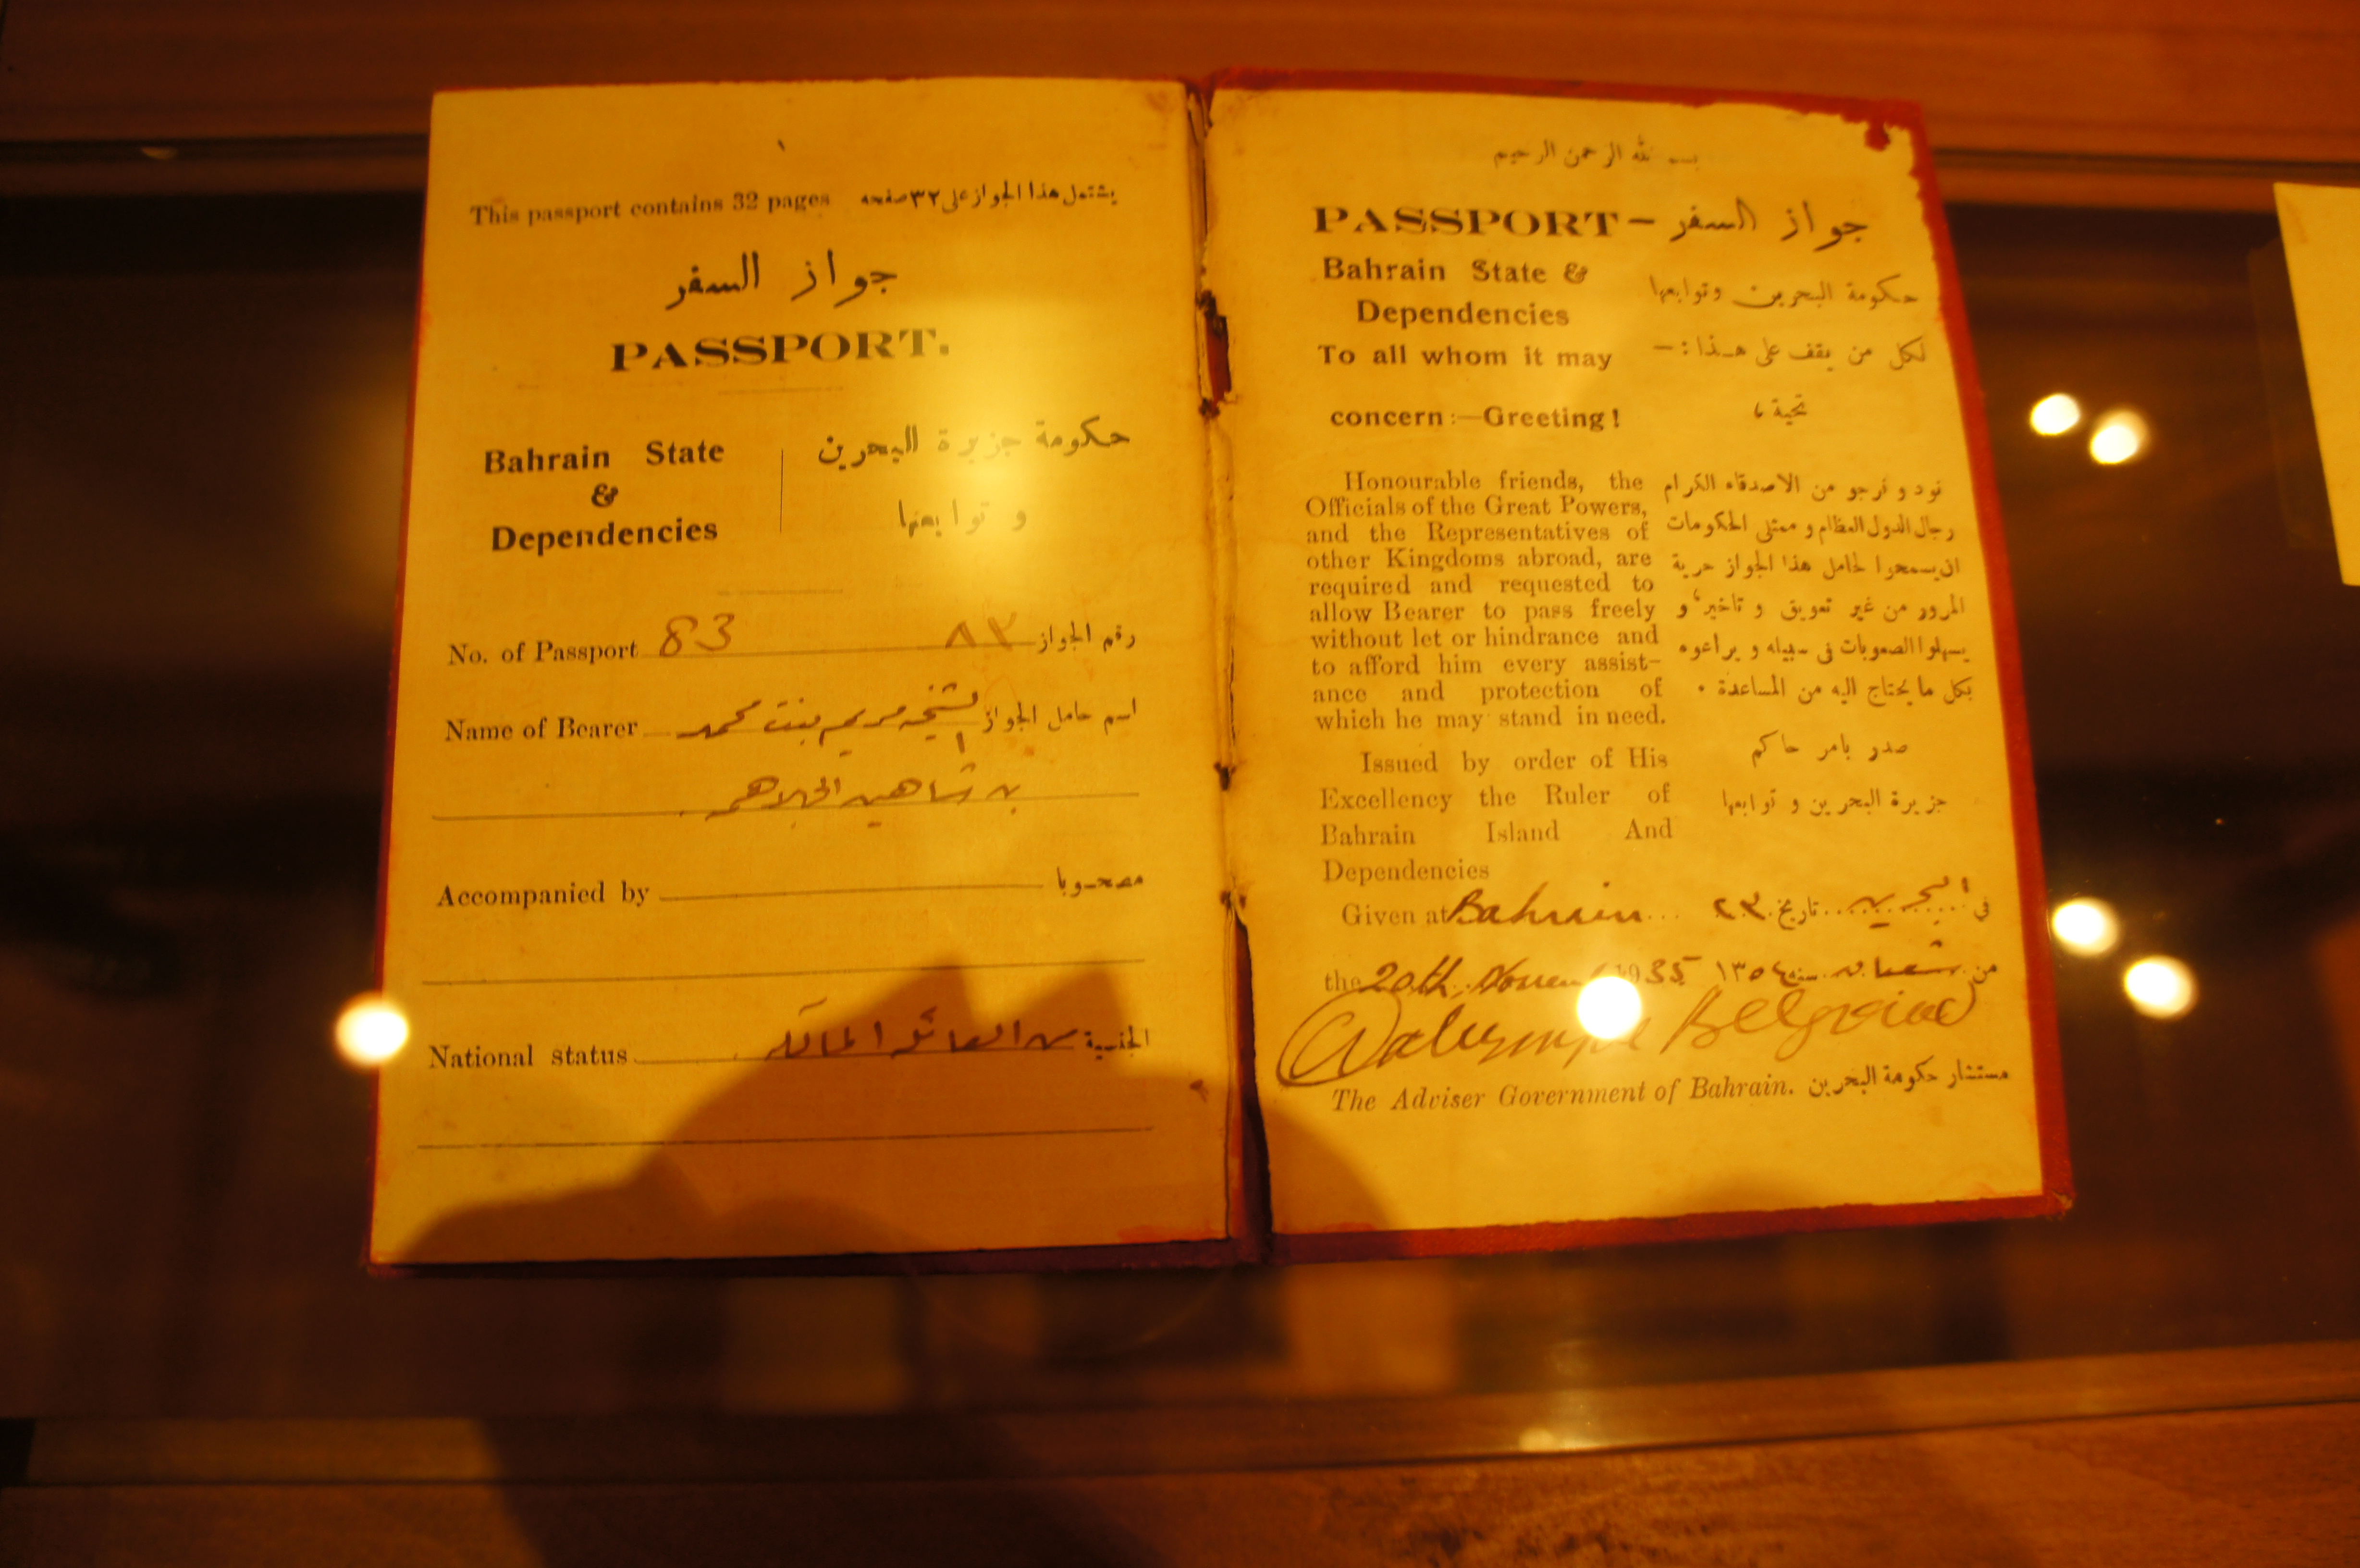 ١
This passport contains 32 pages يشتمل هذا الجواز على ٣٢ صفحه
جواز السفر
PASSPORT.
Bahrain State
&
Dependencies
حكومة جزيرة البحرين
و توابعها
No. of Passport 83 ٨٣ رقم الجواز
Name of Bearer اسم حامل الجواز الشيخه مريم بنت محمد
بن شاهين الجلاهمه
Accompanied by مصحوبا
National status الجنسية من العائله المالكه
بسم الله الرحمن الرحيم
PASSPORT – جواز السفر
Bahrain State &
Dependencies
To all whom it may
concern:—Greeting!
حكومة البحرين وتوابعها
لكل من يقف على هذا:—
تحية ،
Honourable friends, the
Officials of the Great Powers,
and the Representatives of
other Kingdoms abroad, are
required and requested to
allow Bearer to pass freely
without let or hindrance and
to afford him every assist-
ance and protection of
which he may stand in need.
نود و نرجو من الاصدقاء الكرام
رجال الدول العظام و ممثلى الحكومات
ان يسمحوا لحامل هذا الجواز حرية
المرور من غير تعويق و تاخير، و
يسهلوا الصعوبات فى سبيله و يراعوه
بكل ما يحتاج اليه من المساعدة .
Issued by order of His
Excellency the Ruler of
Bahrain Island And
Dependencies
صدر بامر حاكم
جزيرة البحرين و توابعها
Given at Bahrain ... في البحرين تاريخ ٢٣
the 20th, 1935 من شعبان سنه ١٣٥٤
Belgrave
The Adviser Government of Bahrain. مستشار حكومة البحرين